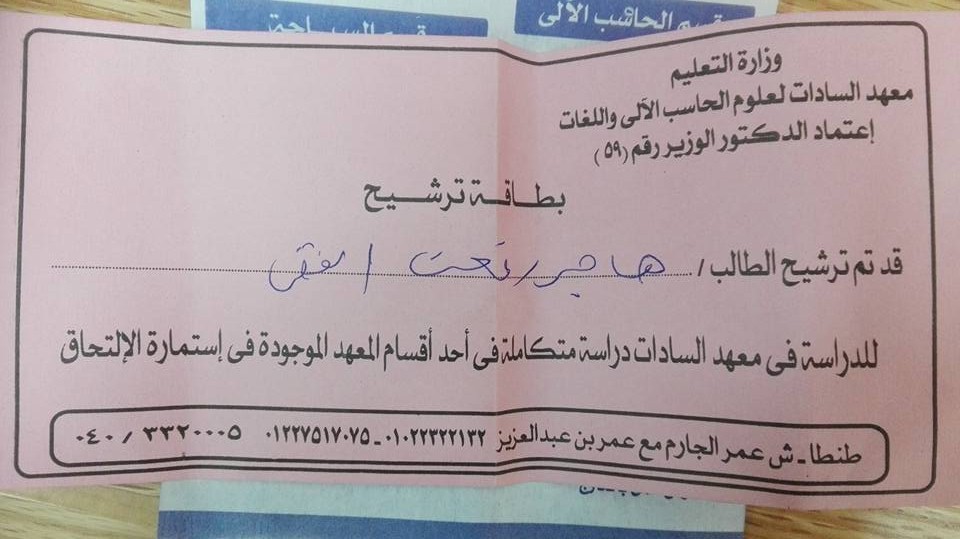 قسم الحاسب الآلى
قسم السياحة
وزارة التعليم
معهد السادات لعلوم الحاسب الآلى واللغات
إعتماد الدكتور الوزير رقم (٥٩)
بطاقة ترشيح
قد تم ترشيح الطالب / هاجر رفعت الفقى
للدراسة فى معهد السادات دراسة متكاملة فى أحد أقسام المعهد الموجودة فى إستمارة الإلتحاق
طنطا - ش عمر الجارم مع عمر بن عبدالعزيز ٠١٠٢٢٣٢٢١٣٢ - ٠١٢٢٧٥١٧٠٧٥ ٠٤٠/٣٣٢٠٠٠٥